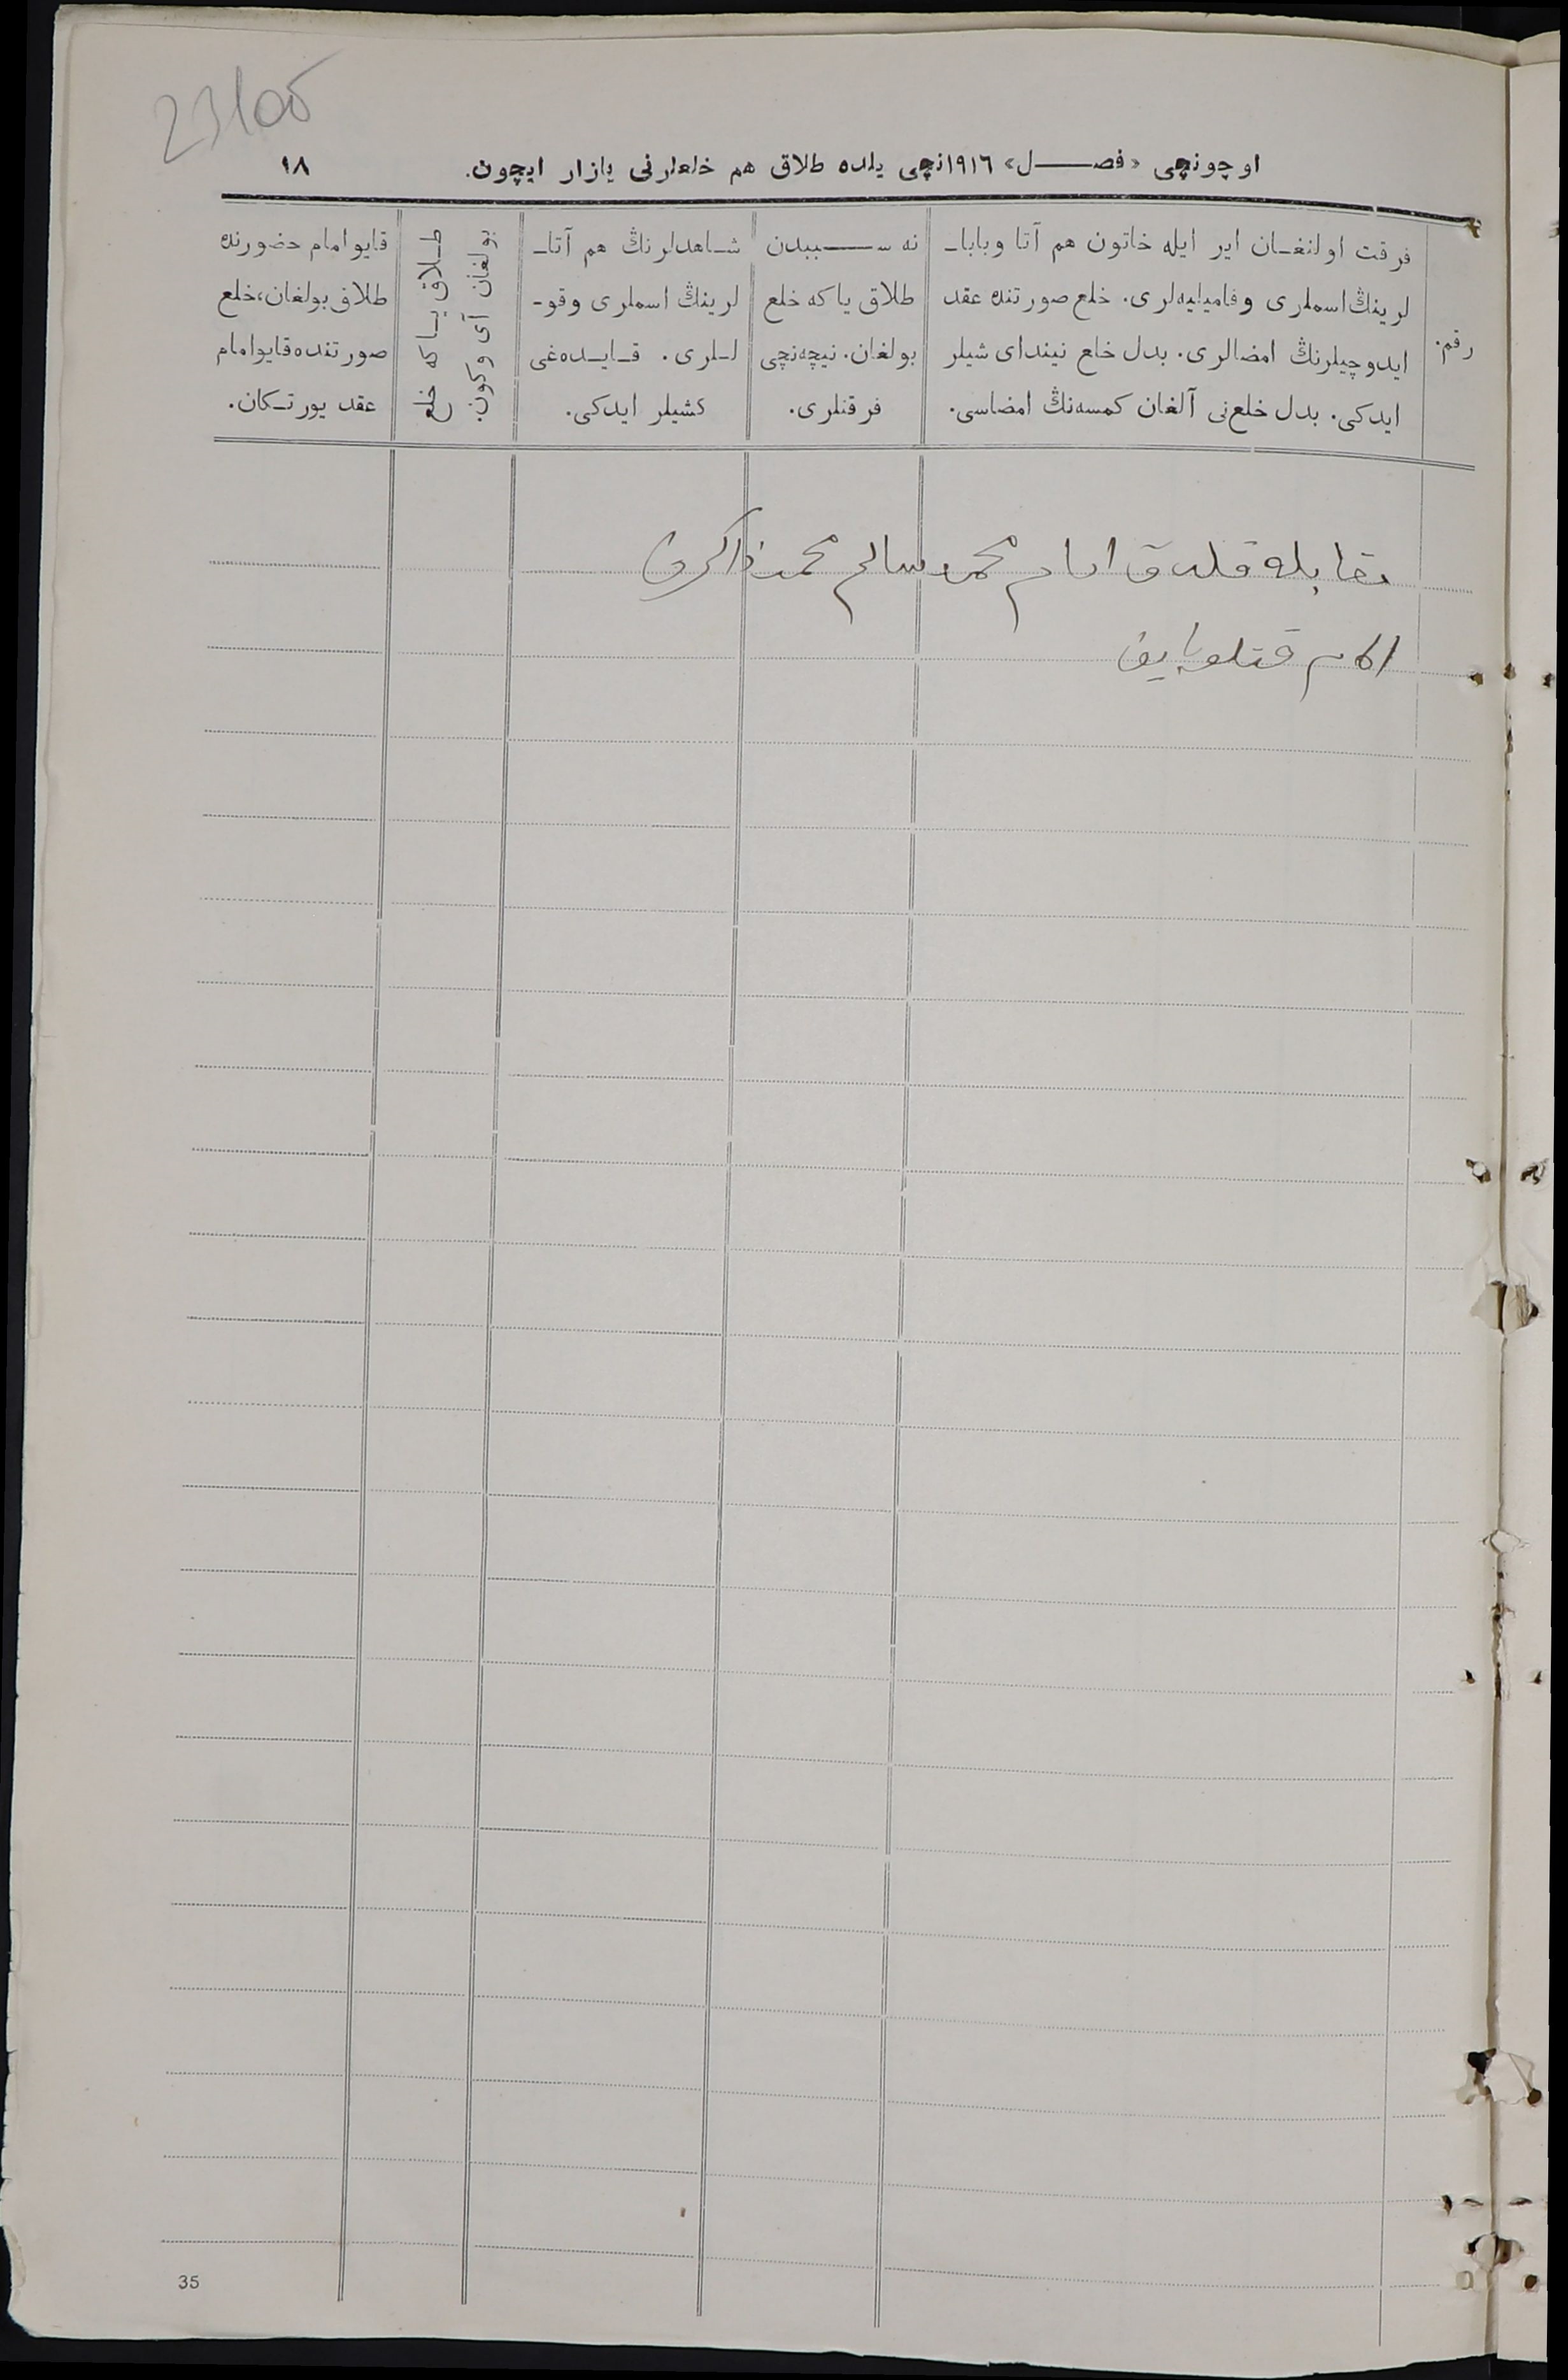 23100
اوچونچی «فصل» ١٩١٦نچی یلده طلاق هم خلعلرنی یازار ایچون.
١٨
رقم.
فرقت اولنغان ایر ایله خاتون هم آتا وبابا-
لرینڭ اسملری وفامیلیه‌لری. خلع صورتنده عقد
ایدوچیلرنڭ امضالری. بدل خلع نیندای شیلر
ایدکی. بدل خلع‌نی آلغان کمسه‌نڭ امضاسی.
نه سببدن
طلاق یا که خلع
بولغان. نیچه‌نچی
فرقتلری.
شاهدلرنڭ هم آتا-
لرینڭ اسملری وقو-
للری. قایده‌غی
کشیلر ایدکی.
طلاق یا که خلع
بولغان آی و کون.
قایو امام حضورنده
طلاق بولغان، خلع
صورتنده قایو امام
عقد یورتکان.
مقابله قلدق امام محمدسالم محمدذاکرف
امام قتلوبایف
35